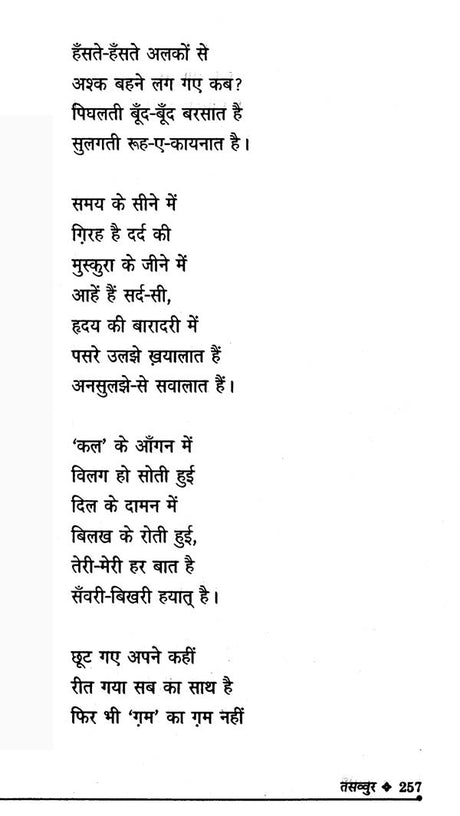 हँसते-हँसते अलकों से
अश्क बहने लग गए कब?
पिघलती बूँद-बूँद बरसात है
सुलगती रूह-ए-कायनात है।
समय के सीने में
गि़रह है दर्द की
मुस्कुरा के जीने में
आहें हैं सर्द-सी,
हृदय की बारादरी में
पसरे उलझे ख़यालात हैं
अनसुलझे-से सवालात हैं।
‘कल’ के आँगन में
विलग हो सोती हुई
दिल के दामन में
बिलख के रोती हुई,
तेरी-मेरी हर बात है
सँवरी-बिखरी हयात् है।
छूट गए अपने कहीं
रीत गया सब का साथ है
फिर भी ‘ग़म’ का ग़म नहीं
तसव्वुर ❖ 257